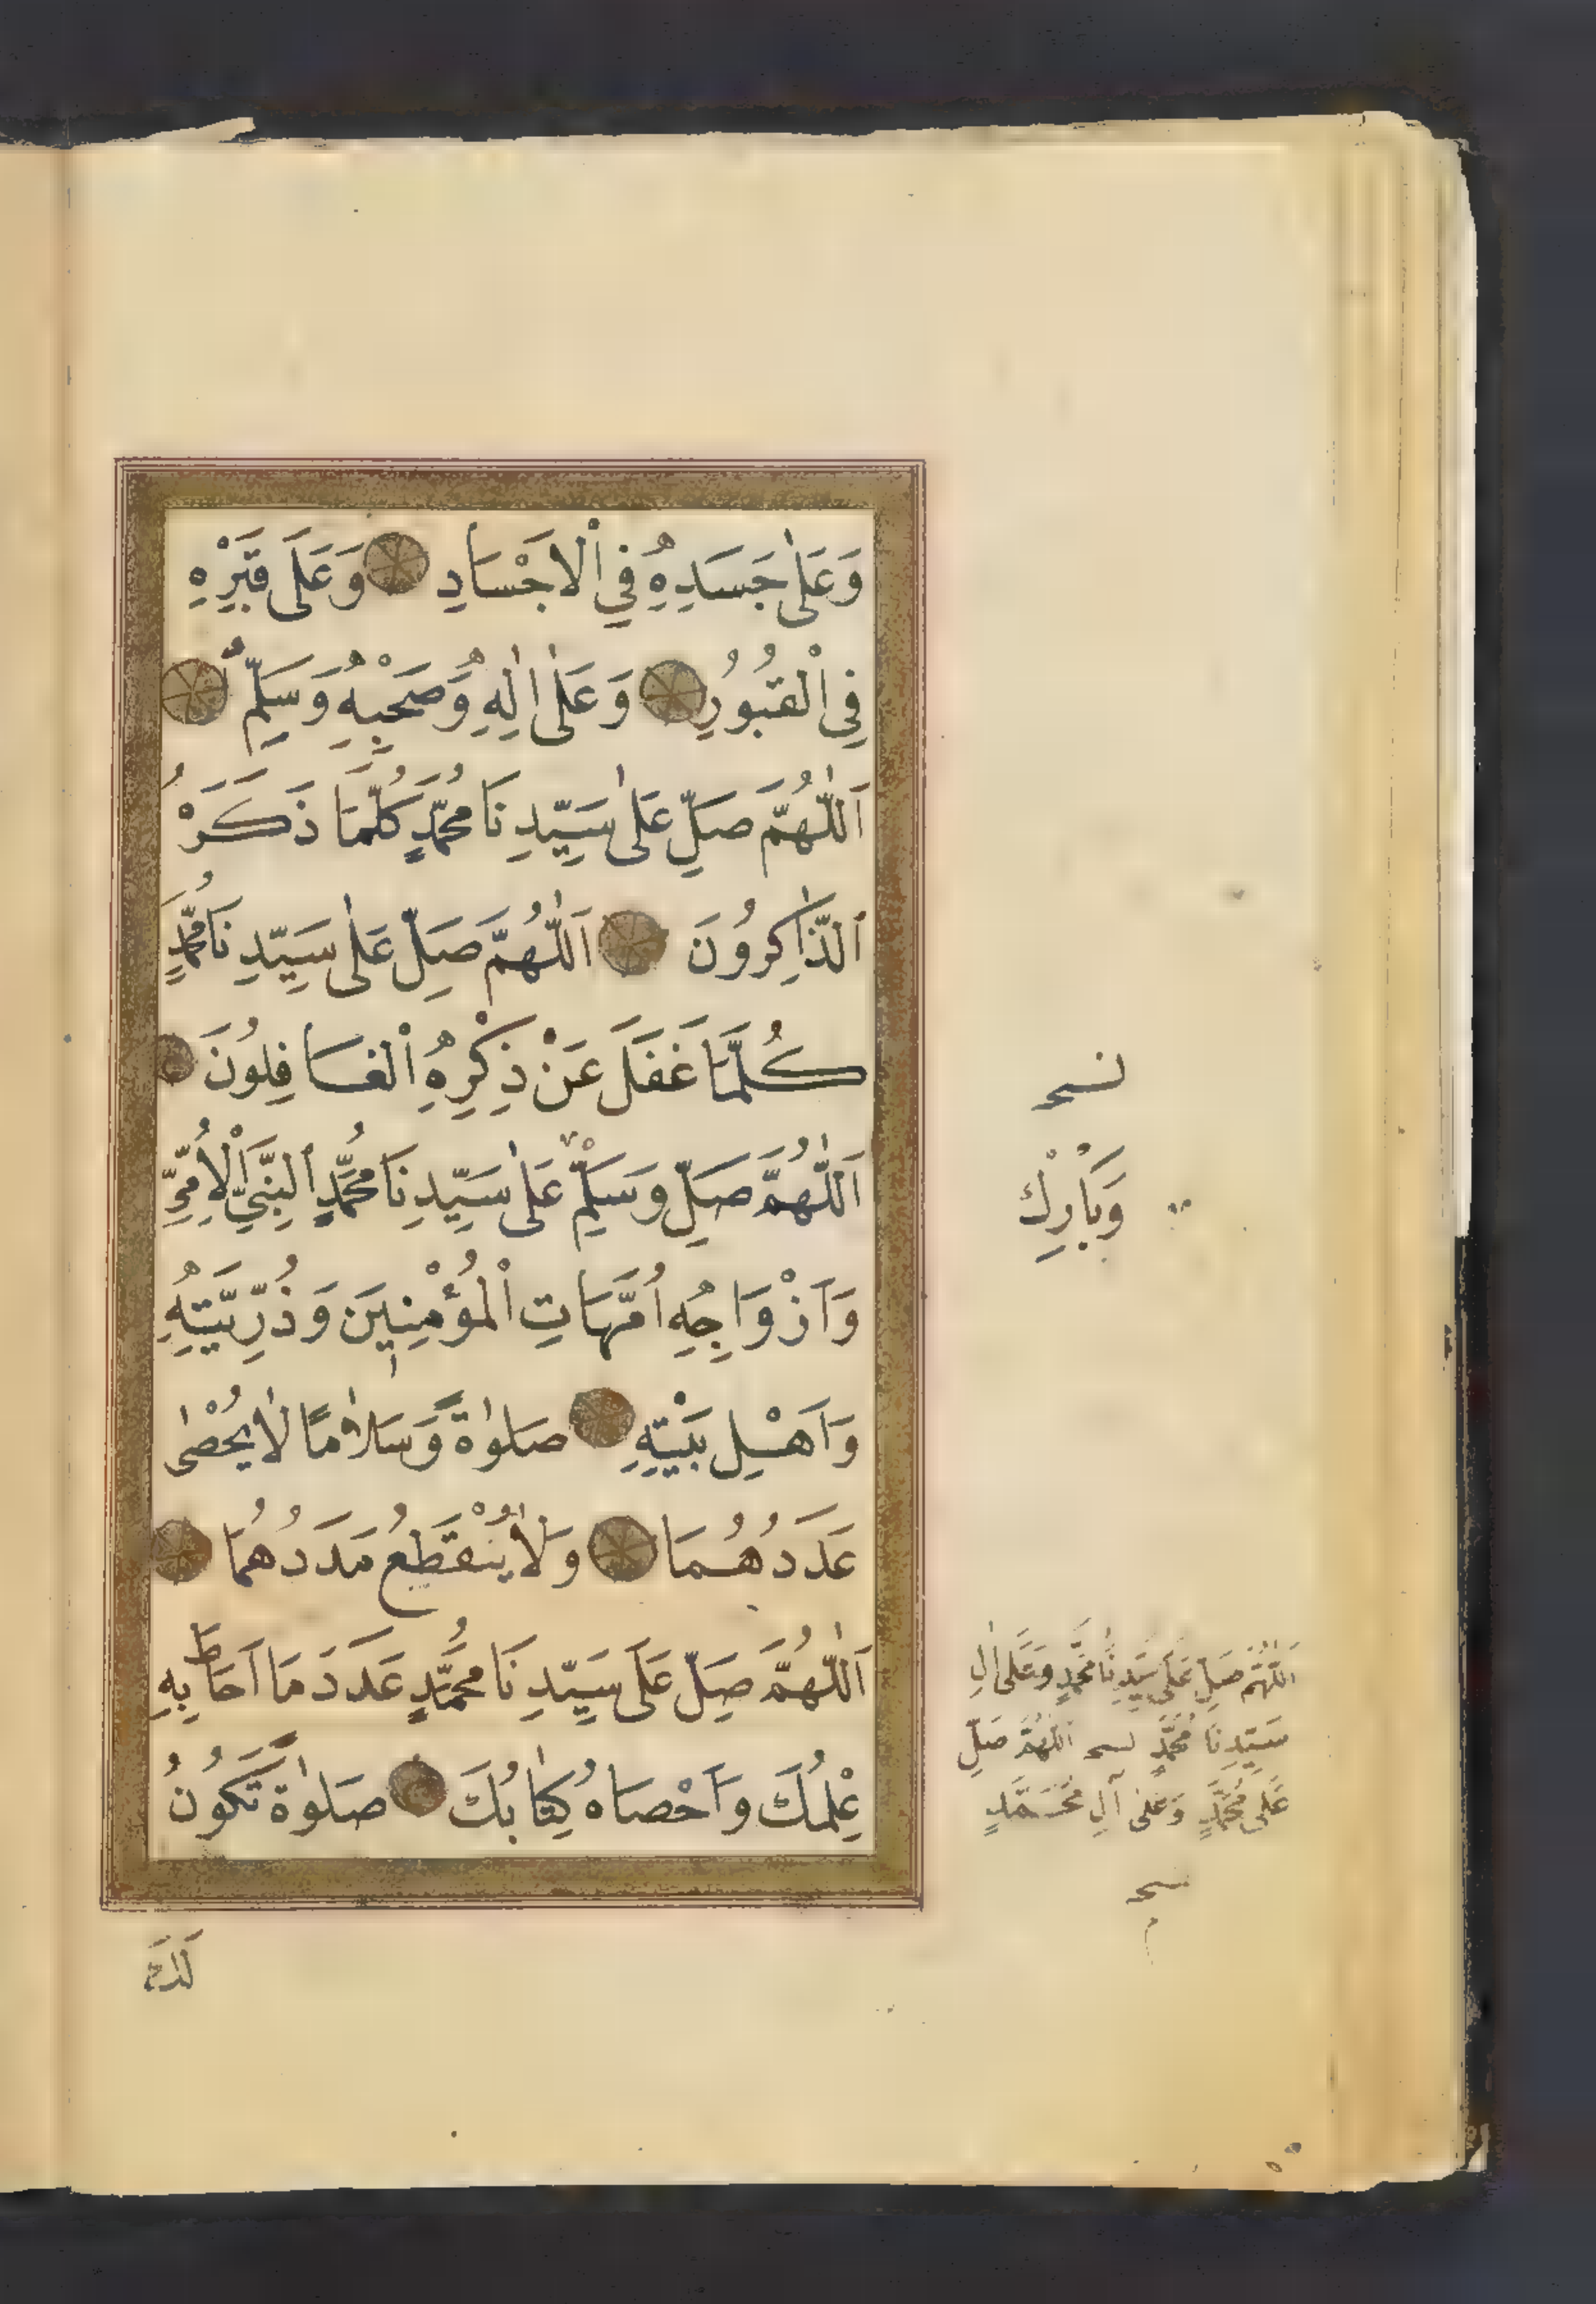 وَعَلٰى جَسَدِهِ فِي الْاَجْسَادِ وَعَلَى قَبْرِهِ
فِي الْقُبُورِ وَعَلٰى اٰلِهِ وَصَحْبِهِ وَسَلِّمْ
اَللّٰهُمَّ صَلِّ عَلٰى سَيِّدِنَا مُحَمَّدٍ كُلَّمَا ذَكَرَهُ
الذَّاكِرُونَ اَللّٰهُمَّ صَلِّ عَلٰى سَيِّدِنَا مُحَمَّدٍ
كُلَّمَا غَفَلَ عَنْ ذِكْرِهِ الْغَافِلُونَ
اَللّٰهُمَّ صَلِّ وَسَلِّمْ عَلٰى سَيِّدِنَا مُحَمَّدٍ النَّبِيِّ الْاُمِّيِّ
وَاَزْوَاجِهِ اُمَّهَاتِ الْمُؤْمِنِينَ وَذُرِّيَّتِهِ
وَاَهْلِ بَيْتِهِ صَلٰوةً وَسَلَامًا لَا يُحْصٰى
عَدَدُهُمَا وَلَا يَنْقَطِعُ مَدَدُهُمَا
اَللّٰهُمَّ صَلِّ عَلَى سَيِّدِنَا مُحَمَّدٍ عَدَدَ مَا اَحَاطَ بِهِ
عِلْمُكَ وَاَحْصَاهُ كِتَابُكَ صَلٰوةً تَكُونُ
لَكَ
نسخه
وَبَارِكْ
اَللّٰهُمَّ صَلِّ عَلَى سَيِّدِنَا مُحَمَّدٍ وَعَلَى اٰلِ
سَيِّدِنَا مُحَمَّدٍ نسخه اَللّٰهُمَّ صَلِّ
عَلَى مُحَمَّدٍ وَعَلٰى آلِ مُحَمَّدٍ
نسخه